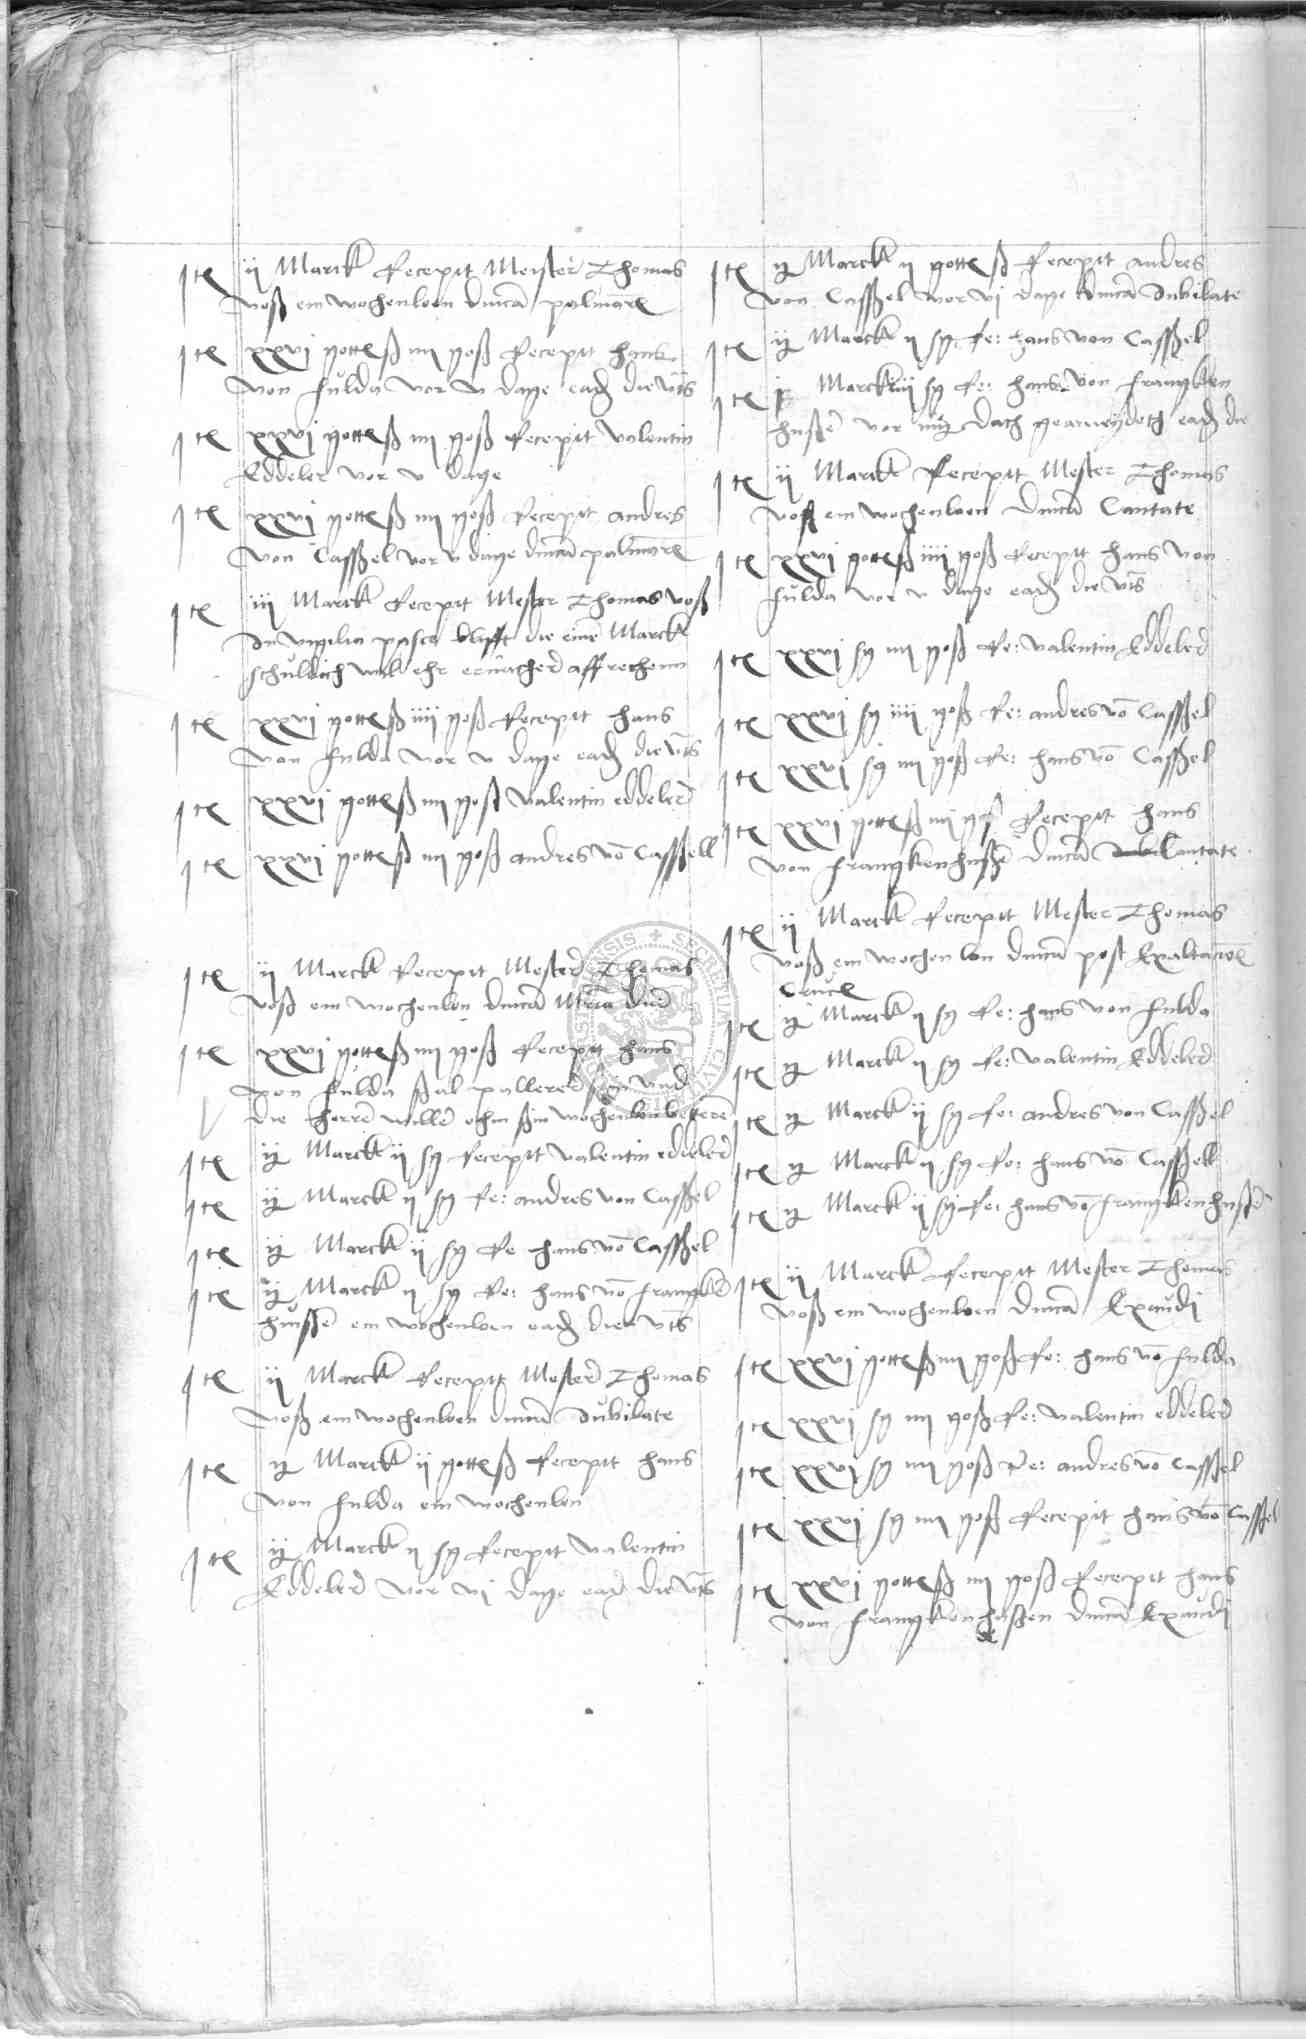 Ite ij Marck Recepit Meister Thomas
voß ein wochenloen dnica palmare
Ite xxvj gotteß iiij goß Recepit hans
von fulda vor v dage eade die vts
Ite xxvj gotteß iiij goß Recepit valentin
Eddeler vor v dage
Ite xxvj gotteß iiij goß Recepit andres
von Casßel vor v dage dnica palmare
Ite iij Marck Recepit Mester Thomas voß
In vigilia pasce blifft die eine Marck
schuldich will ehr affrechenn
Ite xxvj gotteß iiij goß Recepit hans
von fulda vor v dage eade die vts
Ite xxvj gotteß iiij goß valentin eddeler
Ite xxvj gotteß iiij goß andres vo Casßell
Ite ij Marck Recepit Mester Thomas
voß ein wochenlon dnica dni
Ite xxvj gotteß iiij goß Recepit hans
von fulda ßal pallerer sin vnd
die herre wille ohm ßin wochenlon betere
Ite ij Marck ij sg Recepit valentin eddeler
Ite ij Marck ij sg Re: andres von Casßel
Ite ij Marck ij sg Re hans vo Casßel
Ite ij Marck ij sg Re: hans vo francken
hußße ein wochenloen eade die vts
Ite ij Marck Recepit Mester Thomas
voß ein wochenloen dnica Jubilate
Ite ij Marck ij gotteß Recepit hans
von fulda ein wochenlon
Ite ij Marck ij sg Recepit valentin
Eddeler vor vj dage eade die vts
Ite ij Marck ij gotteß Recepit andres
von Casßel vor vj dage dnica Jubilate
Ite ij Marck ij sg Re: hans von Casßel
Ite Marck iiij sg Re: hans von francken
hußße vor dach gearveydeth eade die
Ite ij Marck Recepit Mester Thomas
voß ein wochenloen dnica Cantate
Ite xxvj gotteß iiij goß Recepit hans von
fulda vor v dage eade die vts
Ite xxvj sg iiij goß Re: valentin Eddeler
Ite xxvj sg iiij goß Re: andres vo Casßel
Ite xxvj sg iiij goß Re: hans vo Casßel
Ite xxvj gotteß iiij gß Recepit hans
von franckenhußße dnica Cantate
Ite ij Marck Recepit Mester Thomas
voß ein wochenlon dnica post Exaltacioe
Cruce
Ite ij Marck ij sg Re: hans von fulda
Ite ij Marck ij sg Re: valentin Eddeler
Ite ij Marck ij sg Re: andres von Casßel
Ite ij Marck ij sg Re: hans vo Casßell
Ite ij Marck ij sg Re: hans vo franckenhußße
Ite ij Marck Recepit Mester Thomas
voß ein wochenloen dnica Exaudi
Ite xxvj gotteß iiij goß Re: hans vo fulda
Ite xxvj sg iiij goß Re: valentin eddeler
Ite xxvj sg iiij goß Re: andres vo Casßel
Ite xxvj sg iiij goß Recepit hans vo Casßel
Ite xxvj gotteß iiij goß Recepit hans
von franckenhußen dnica Exaudi